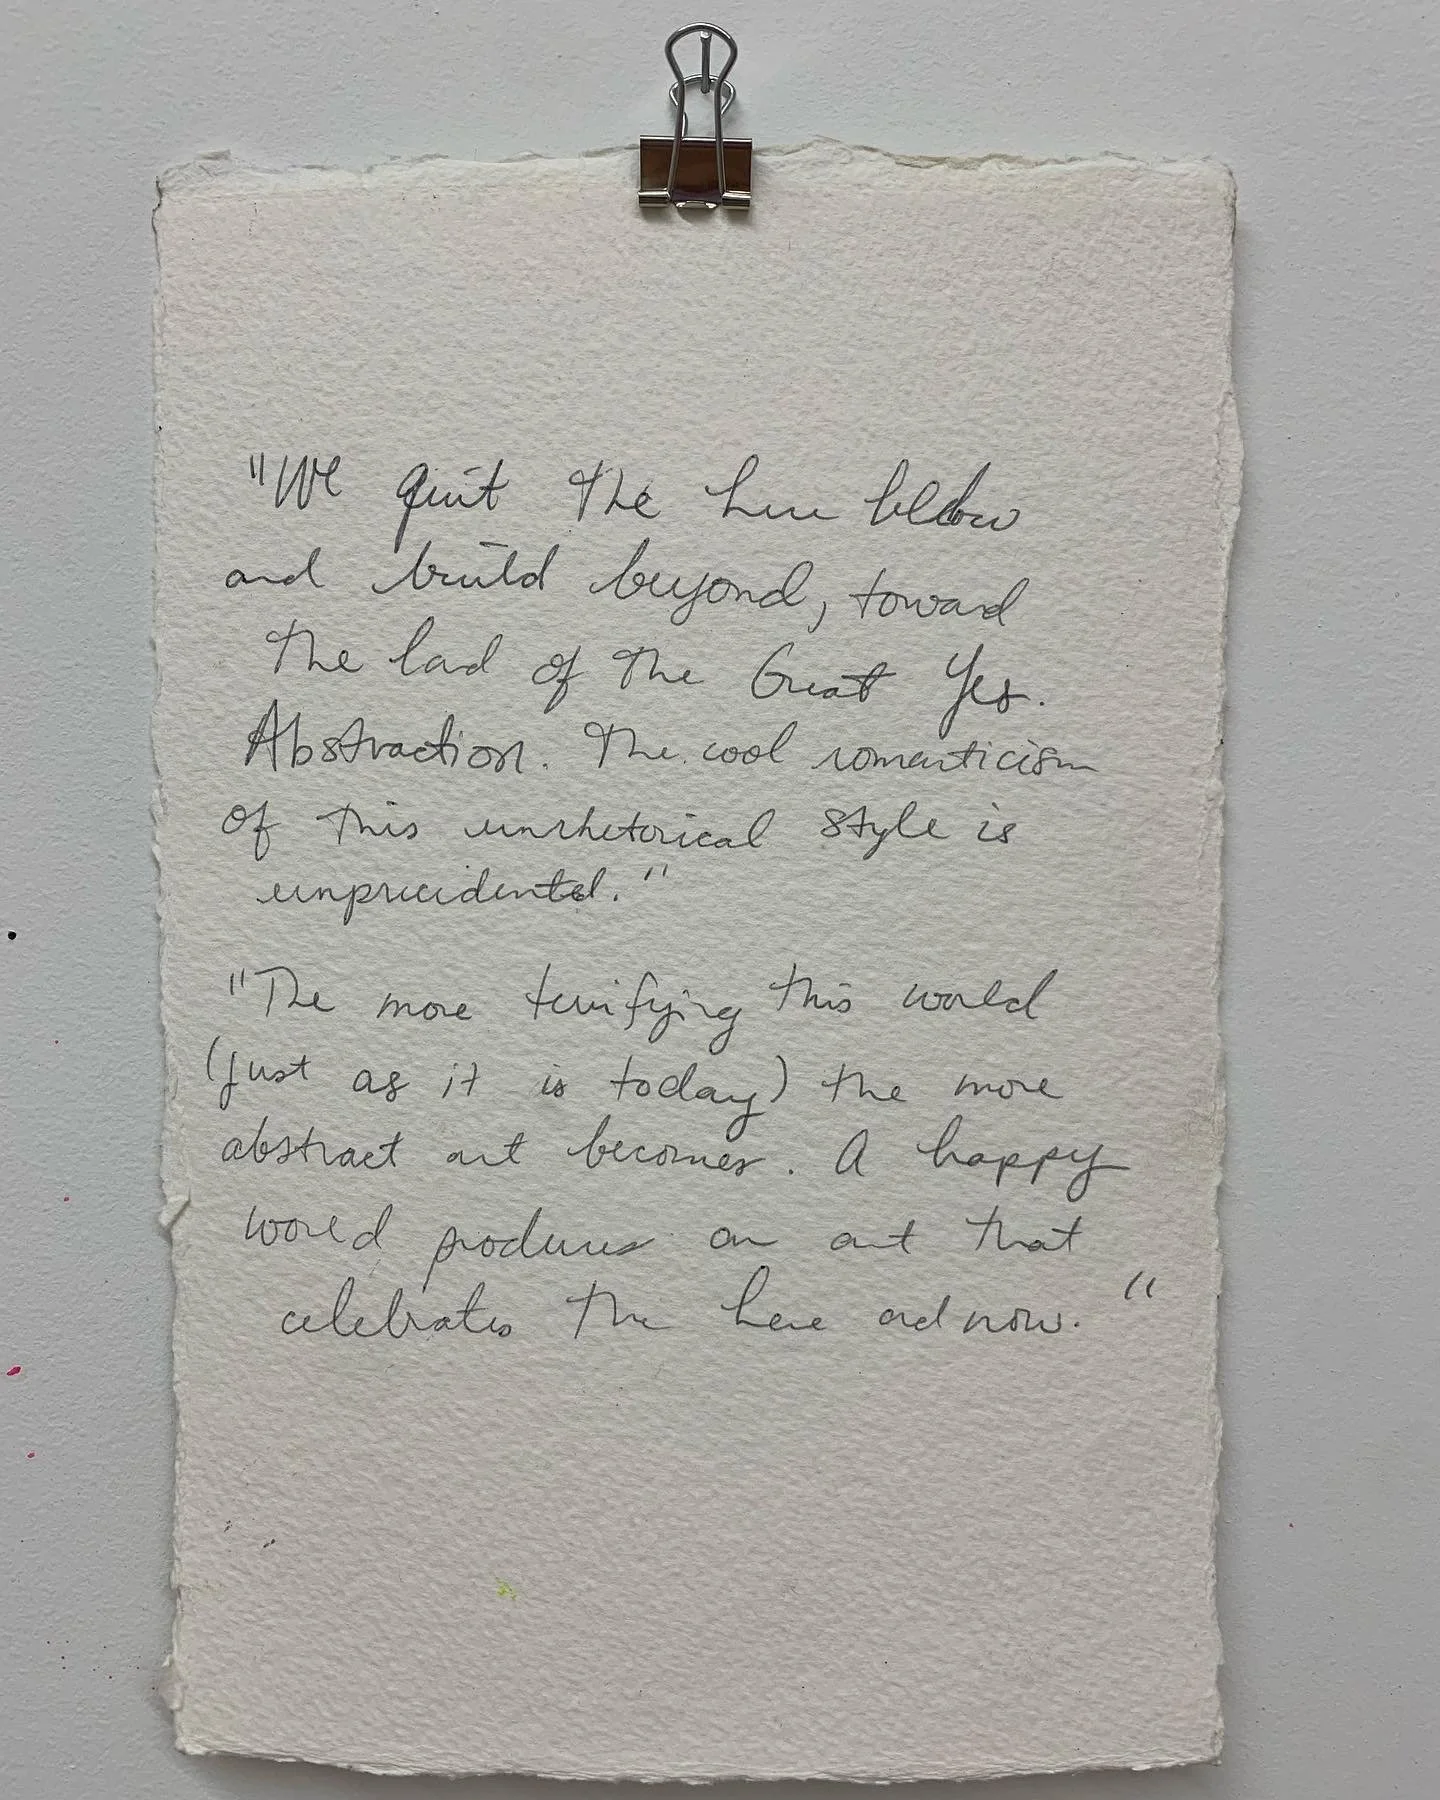 "We quit the here below
and build beyond, toward
the land of the Great Yes.
Abstraction. The cool romanticism
of this unrhetorical style is
unprecidented."
"The more terrifying this world
(just as it is today) the more
abstract art becomes. A happy
world produces an art that
celebrates the here and now."